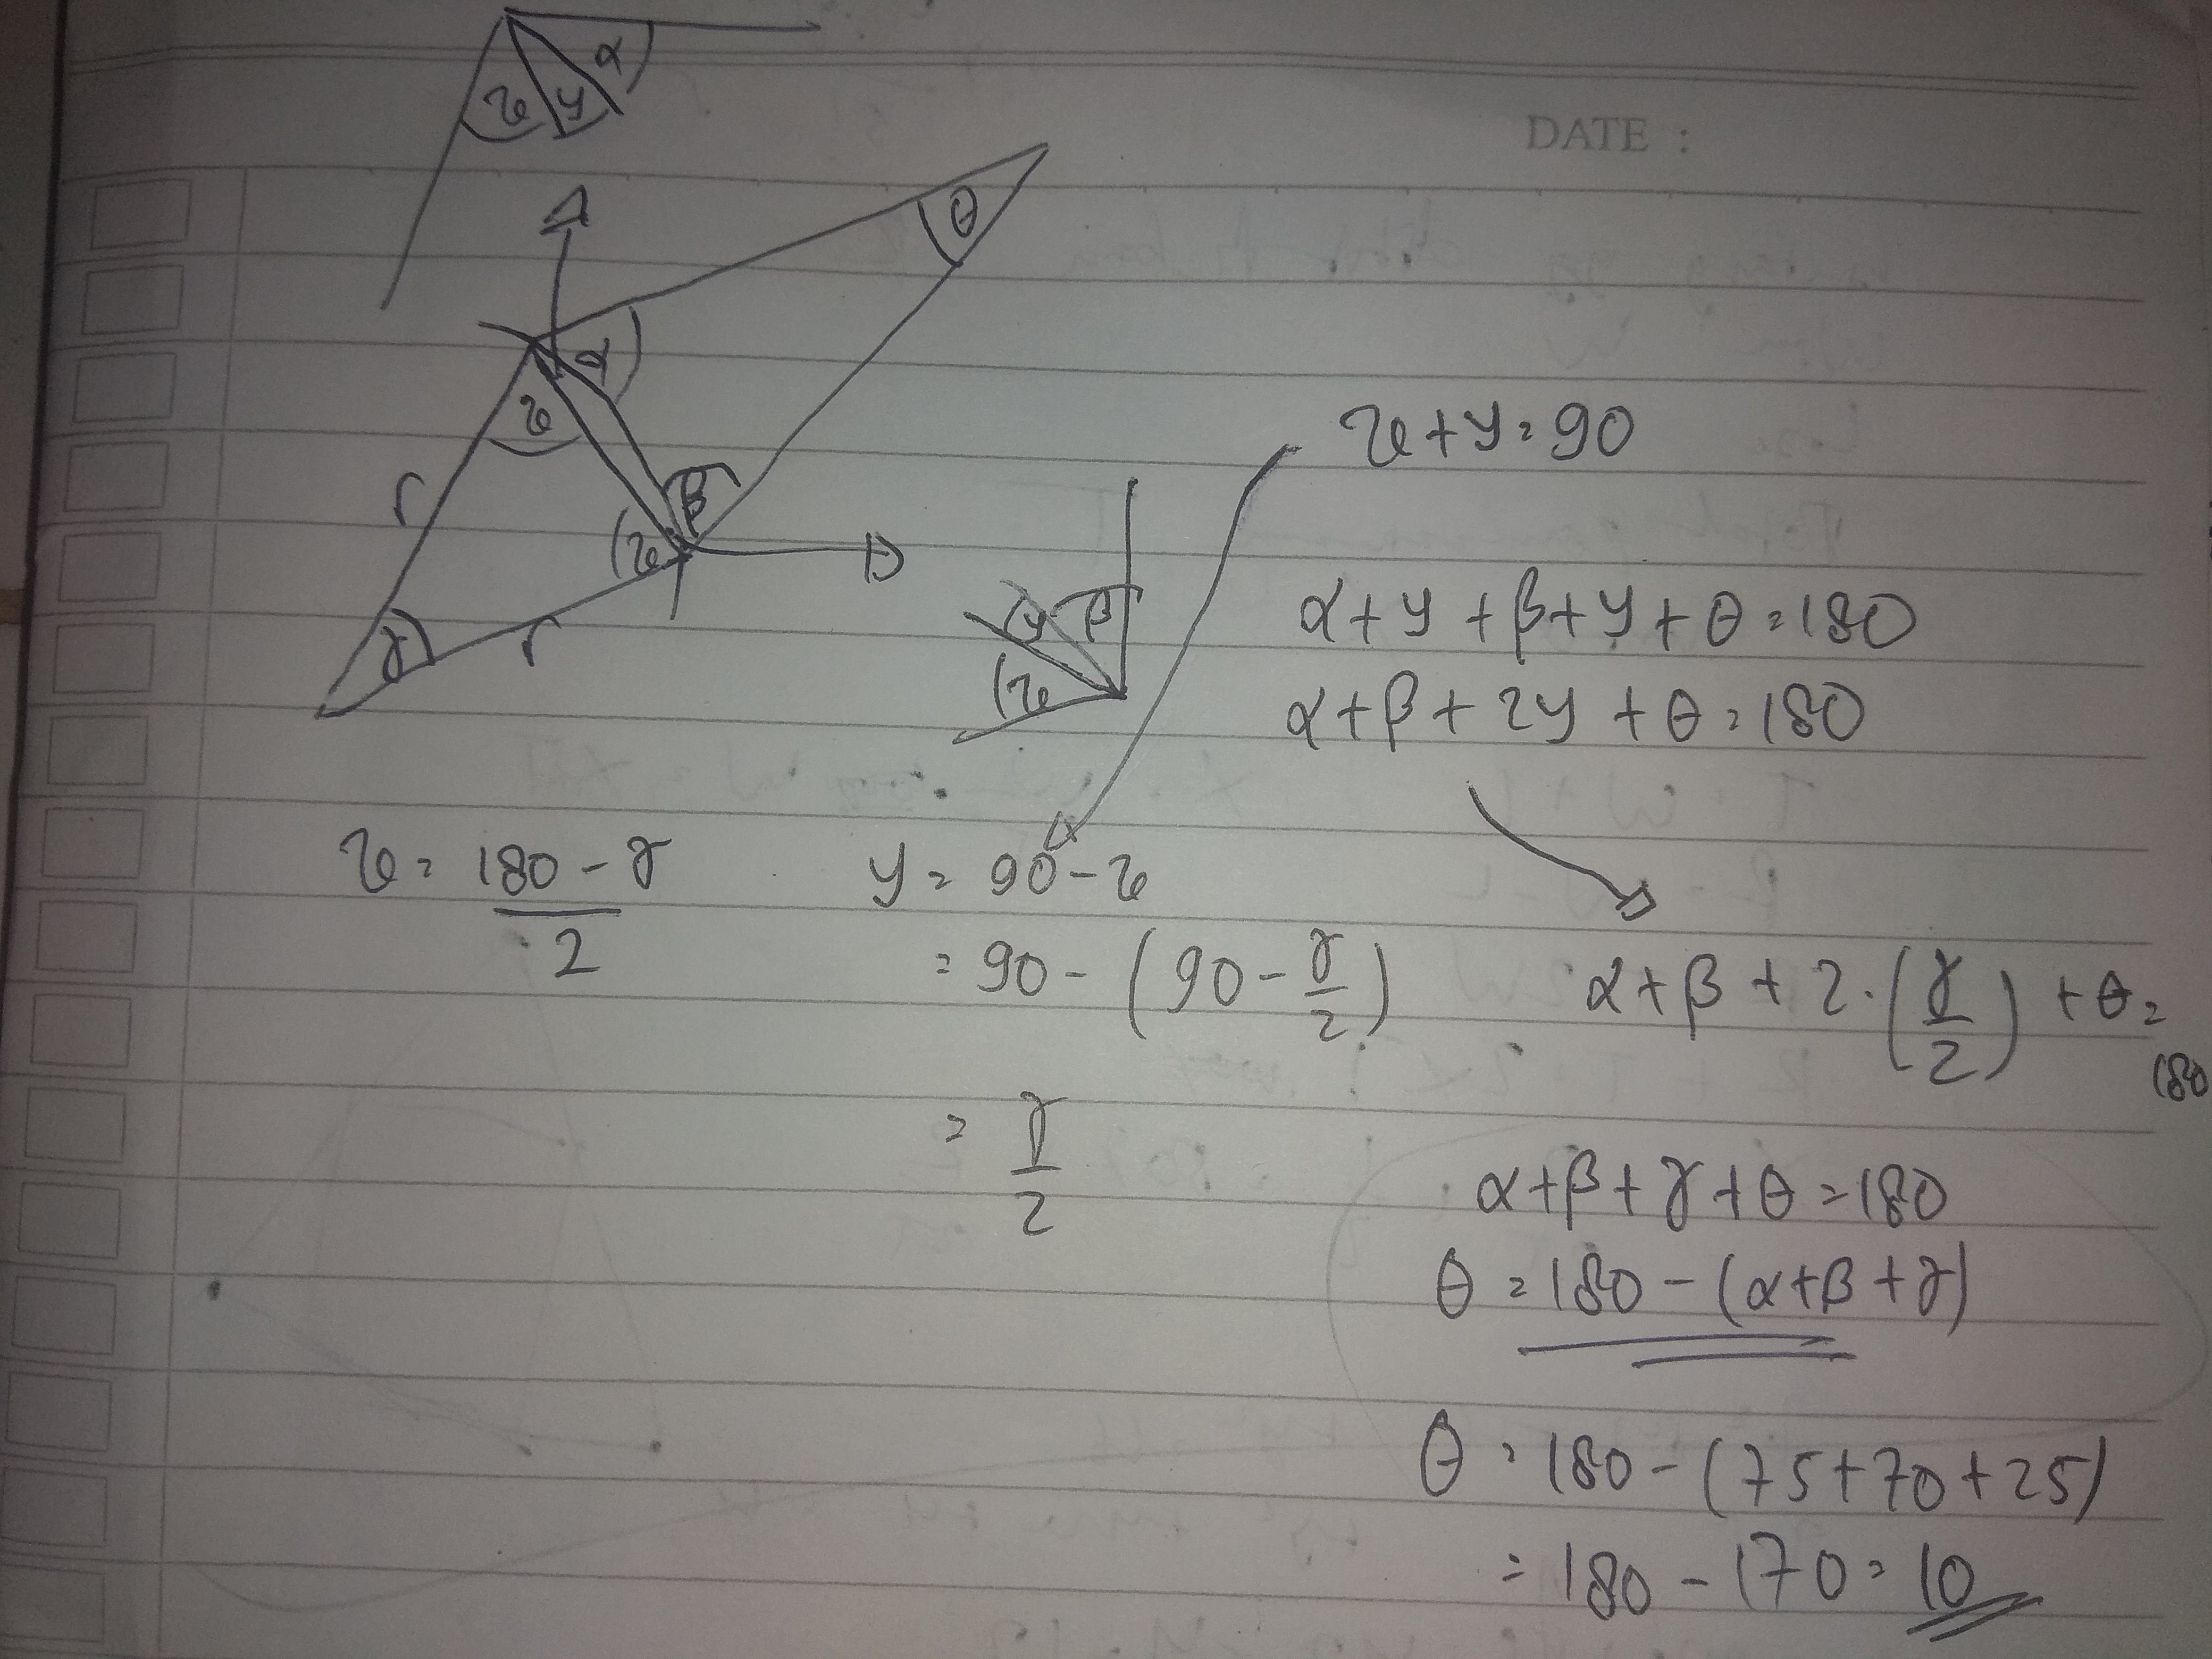 α
x y
DATE :
θ
α
x
x + y = 90
r
β
x
y β
x
α + y + β + y + θ = 180
r
γ
α + β + 2y + θ = 180
x = 180 - γ / 2
y = 90 - x
= 90 - (90 - γ/2)
α + β + 2.(γ/2) + θ = 180
= γ/2
α + β + γ + θ = 180
θ = 180 - (α + β + γ)
θ = 180 - (75 + 70 + 25)
= 180 - 170 = 10